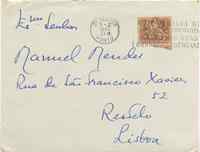 Exmo
Senhor
Manuel Mendes
Rua de São Francisco Xavier
52
Restelo
Lisboa